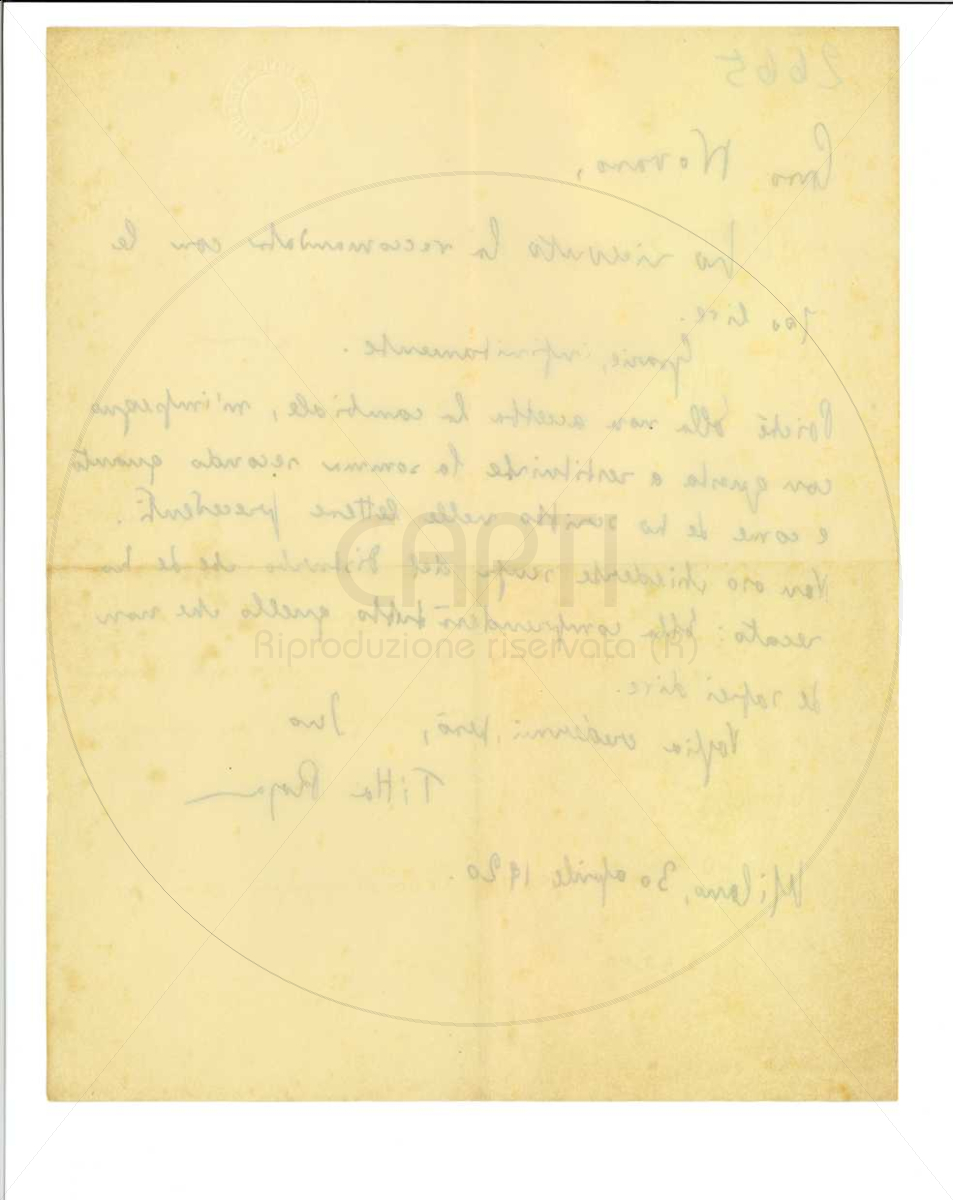 2665
Caro Novaro,
ho ricevuto la raccomandata con le
lire.
Grazie, infinitamente.
Poiché Ella non accetta la cambiale, m'impegno
con questa a restituirLe la somma secondo quanto
e come Le ho scritto nelle lettere precedenti.
Non oso chiederLe scusa del disturbo che Le ho
recato: Ella comprenderà tutto quello che non
Le saprei dire.
Voglia credermi, però, Suo
Titta Rosa
Milano, 30 aprile 1920.
CAPTI
Riproduzione riservata (R)